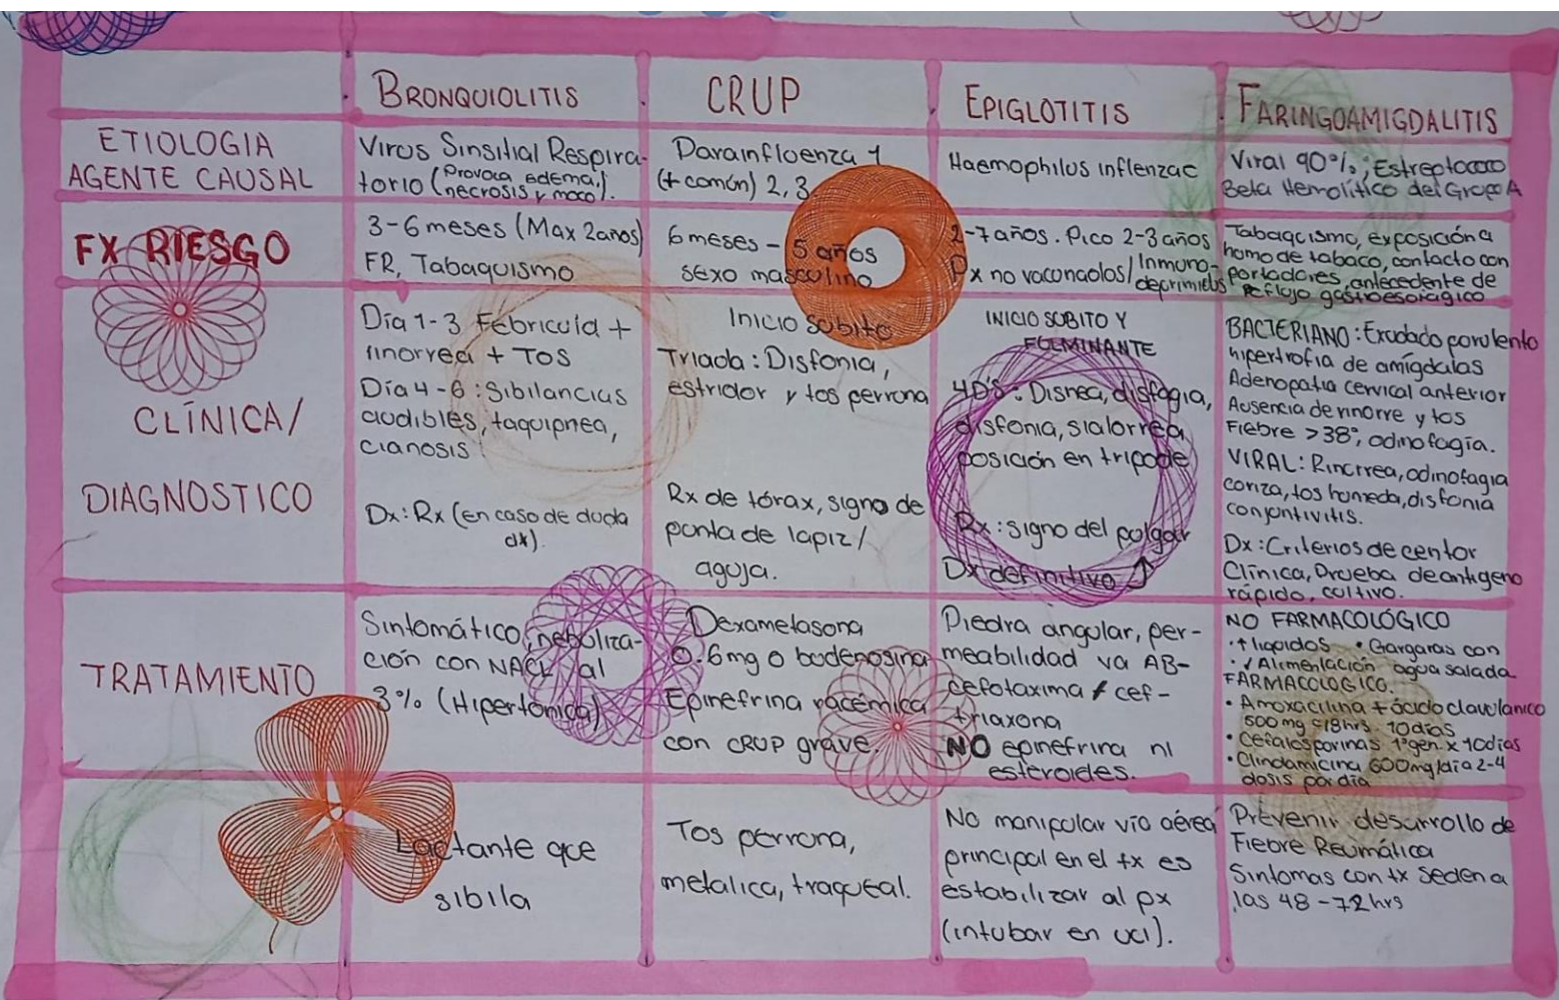 BRONQUIOLITIS
CRUP
EPIGLOTITIS
FARINGOAMIGDALITIS
ETIOLOGIA
AGENTE CAUSAL
Virus Sinsitial Respira-
torio (Provoca edema,
necrosis y moco).
Parainfluenza 1
(+ común) 2, 3
Haemophilus inflenzae
Viral 90%; Estreptococo
Beta Hemolítico del Grupo A
FX RIESGO
3-6 meses (Max 2años)
FR, Tabaquismo
6 meses - 5 años
sexo masculino
2-7años. Pico 2-3años
Px no vacunados/Inmuno-
deprimidos
Tabaquismo, exposición a
homo de tabaco, contacto con
portadores, antecedente de
Reflujo gastroesofágico
CLÍNICA/
DIAGNOSTICO
Día 1-3 Febricula +
rinorrea + TOS
Día 4-6: Sibilancias
audibles, taquipnea,
cianosis
Dx: Rx (en caso de duda
dx).
Inicio subito
Triada: Disfonia,
estridor y tos perruna
Rx de tórax, signo de
punta de lapiz /
aguja.
INICIO SUBITO Y
FULMINANTE
4D'S: Disnea, disfagia,
disfonia, sialorrea
posición en tripode
Rx: signo del pulgar
Dx definitivo ↑
BACTERIANO: Exudado purulento
hipertrofia de amígdalas
Adenopatia cervical anterior
Ausencia de rinorre y tos
Fiebre >38°, odinofagia.
VIRAL: Rinorrea, odinofagia
coriza, tos humeda, disfonia
conjuntivitis.
Dx: Criterios de centor
Clínica, Prueba de antigeno
rápido, cultivo.
TRATAMIENTO
Sintomático, nebuliza-
ción con NACL al
3% (Hipertónica)
Dexametasona
0.6mg o budenosina
Epinefrina racémica
con CRUP grave.
Piedra angular, per-
meabilidad va AB-
cefotaxima / cef-
triaxona
NO epinefrina ni
esteroides.
NO FARMACOLÓGICO
• ↑ liquidos • Gargaras con
• ✓ Alimentación agua salada
FARMACOLOGICO.
• Amoxacilina + ácido clavulanico
500mg c/8hrs 10días
• Cefalosporinas 1ªgen. x 10días
• Clindamicina 600mg/día 2-4
dosis por día
Lactante que
sibila
Tos perruna,
metalica, traqueal.
No manipular vío aérea
principal en el tx es
estabilizar al px
(intubar en uci).
Prevenir desarrollo de
Fiebre Reumática
Sintomas con tx seden a
las 48-72hrs